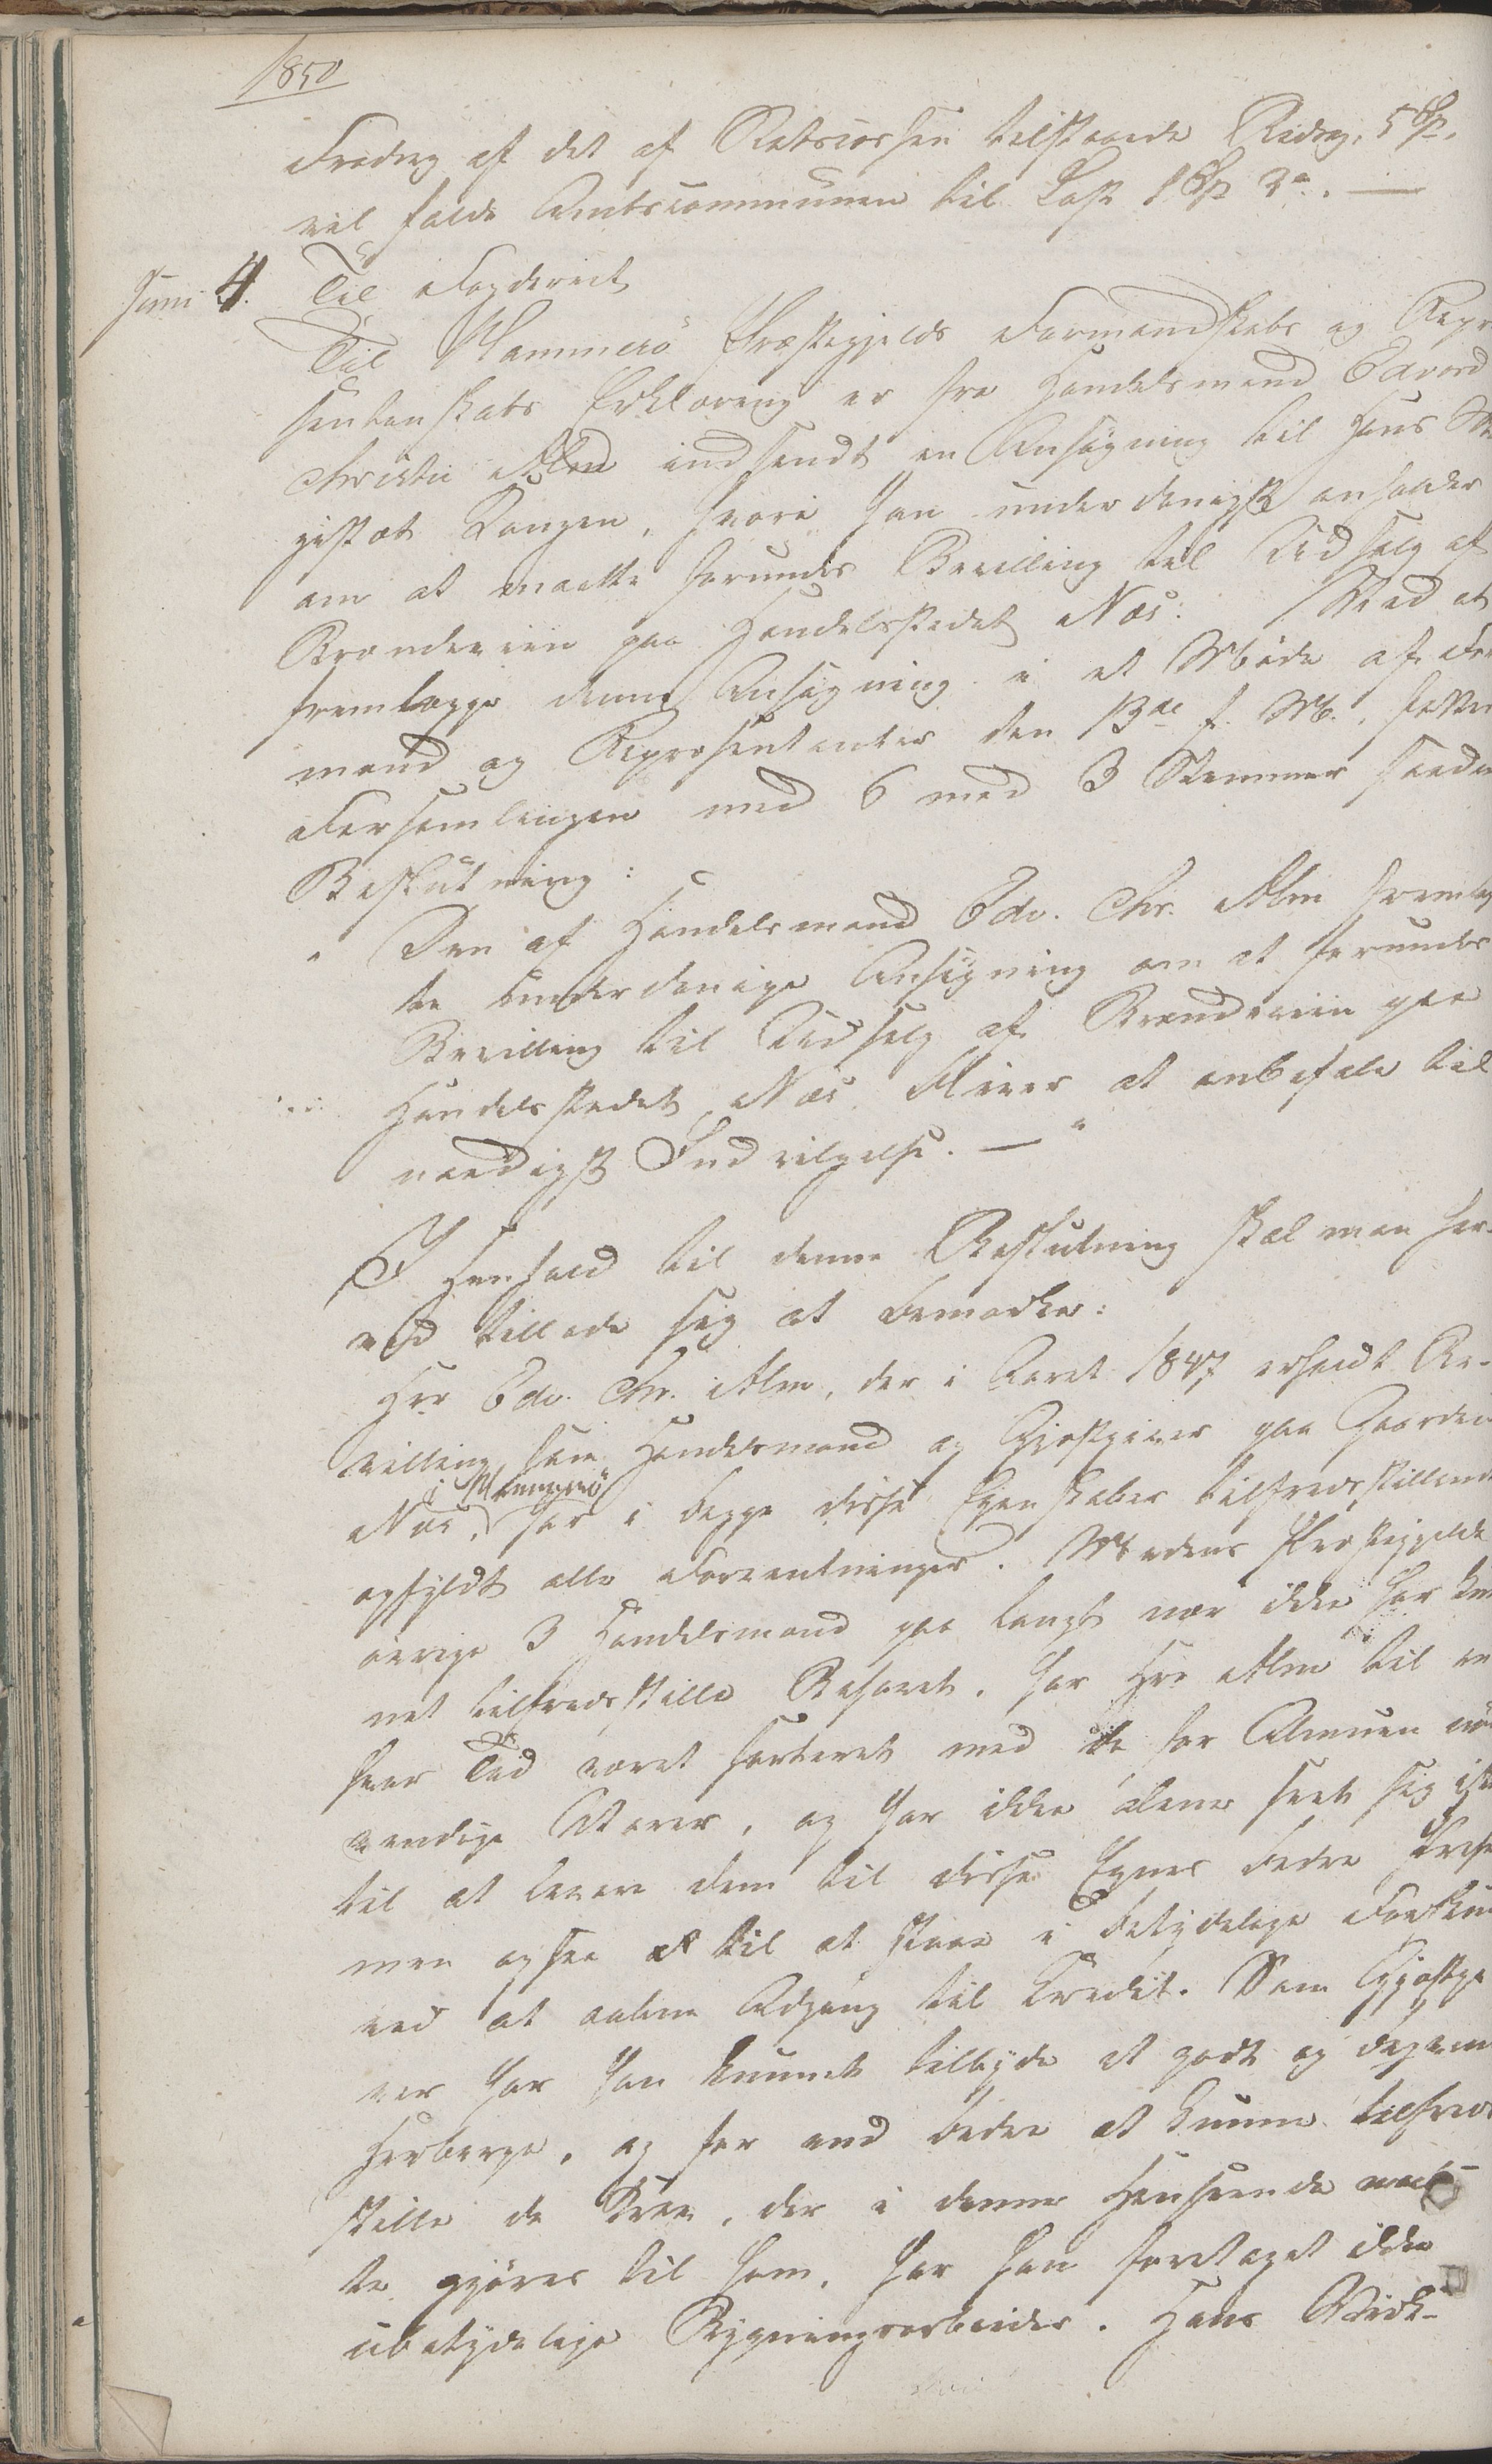 1850
Fradrag af det af Statscassen tilstaaede Bidrag, 5 Sp.
vil falde Amtscommunen til Last 1 Sp 3 .. —
Juni 4. Til Fogderiet
Til Hammerø Præstegjelds Formandskabs og Repræ
sentanskabs Erklæring er fra Handelsmand Edvard
Christie Alm indsendt en Ansøgning til Hans Ma
jestæt Kongen, hvori han underdanigst ansøger
om at maatte forundes Bevilling til Udsalg af
Brændeviin paa Handelsstedet Næs. Ved at
fremlægge denne Ansøgning i et Møde af For
mænd og Repræsentanter den 13de f. M., fatted
Forsamlingen med 6 mod 3 Stemmer saadan
Beslutning:
" Den af Handelsmand Edv. Chr. Alm fremlag
te underdanige Ansøgning om at forundes
Bevilling til Udsalg af Brændeviin paa
Handelsstedet Næs bliver at anbefale til
naadigst Indvilgelse. — "
I Henhold til denne Beslutning skal man her-
ved tillade sig at bemærke:
Hr Edv. Chr. Alm, der i Aaret 1847 erholdt Be-
villing som Handelsmand og Gjæstgiver paa Gaarden
i Hammerø
Næs, har i begge disse Egenskaber tilfredsstillende
opfyldt alle Forventninger. Medens Præstegjeldets
øvrige 3 Handelsmænd paa langt nær ikke har kun
net tilfredsstille Behovet, har Hr Alm til en
hver Tid været forsynet med de for Almuen nød
vendige Varer, og har ikke alene seet sig istand
til at levere dem til disse Egnes bedre Priser
men ogsaa til at staae i betydelige Forskud
ved at aabne Adgang til Credit. Som Gjæstgi
ver har han kunnet tilbyde et godt og bequemt
Herberge, og for end bedre at kunne tilfreds
stille de Krav, der i denne Henseende maat-
te gjøres til ham, har han foretaget ikke
ubetydelige Bygningsarbeider. Hans Virk-